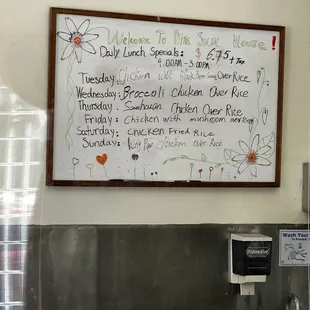 Welcome To Dim Sum House!
Daily Lunch Specials: $6.75 + Tax
9:00AM - 3:00PM
Tuesday: Chicken Over Rice
Wednesday: Broccoli Chicken Over Rice
Thursday: Chicken Over Rice
Friday: Chicken with mushroom over
Saturday: Chicken Fried Rice
Sunday: Kung Pao Chicken Over Rice
Palmolive
Wash Your